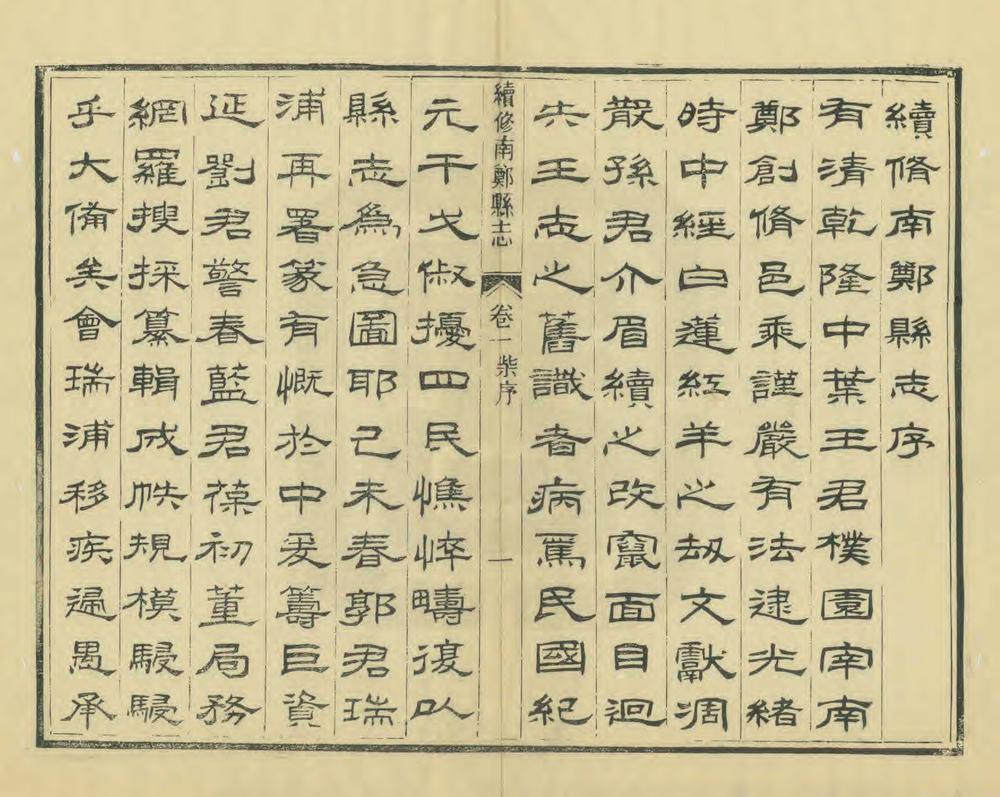 續脩南鄭縣志序
有清乾隆中葉王君樸園宰南
鄭創脩邑乘謹嚴有法逮光緒
時中經白蓮紅羊之劫文獻凋
散孫君介眉續之改竄面目迥
失王志之舊識者病焉民國紀
續修南鄭縣志 卷一 柴序 一
元干戈俶擾四民憔悴疇復以
縣志為急圖耶己未春郭君瑞
浦再署篆有慨於中爰籌巨資
延劉君警春藍君葆初董局務
網羅搜採纂輯成帙規模駸駸
乎大備矣會瑞浦移疾遄愚承